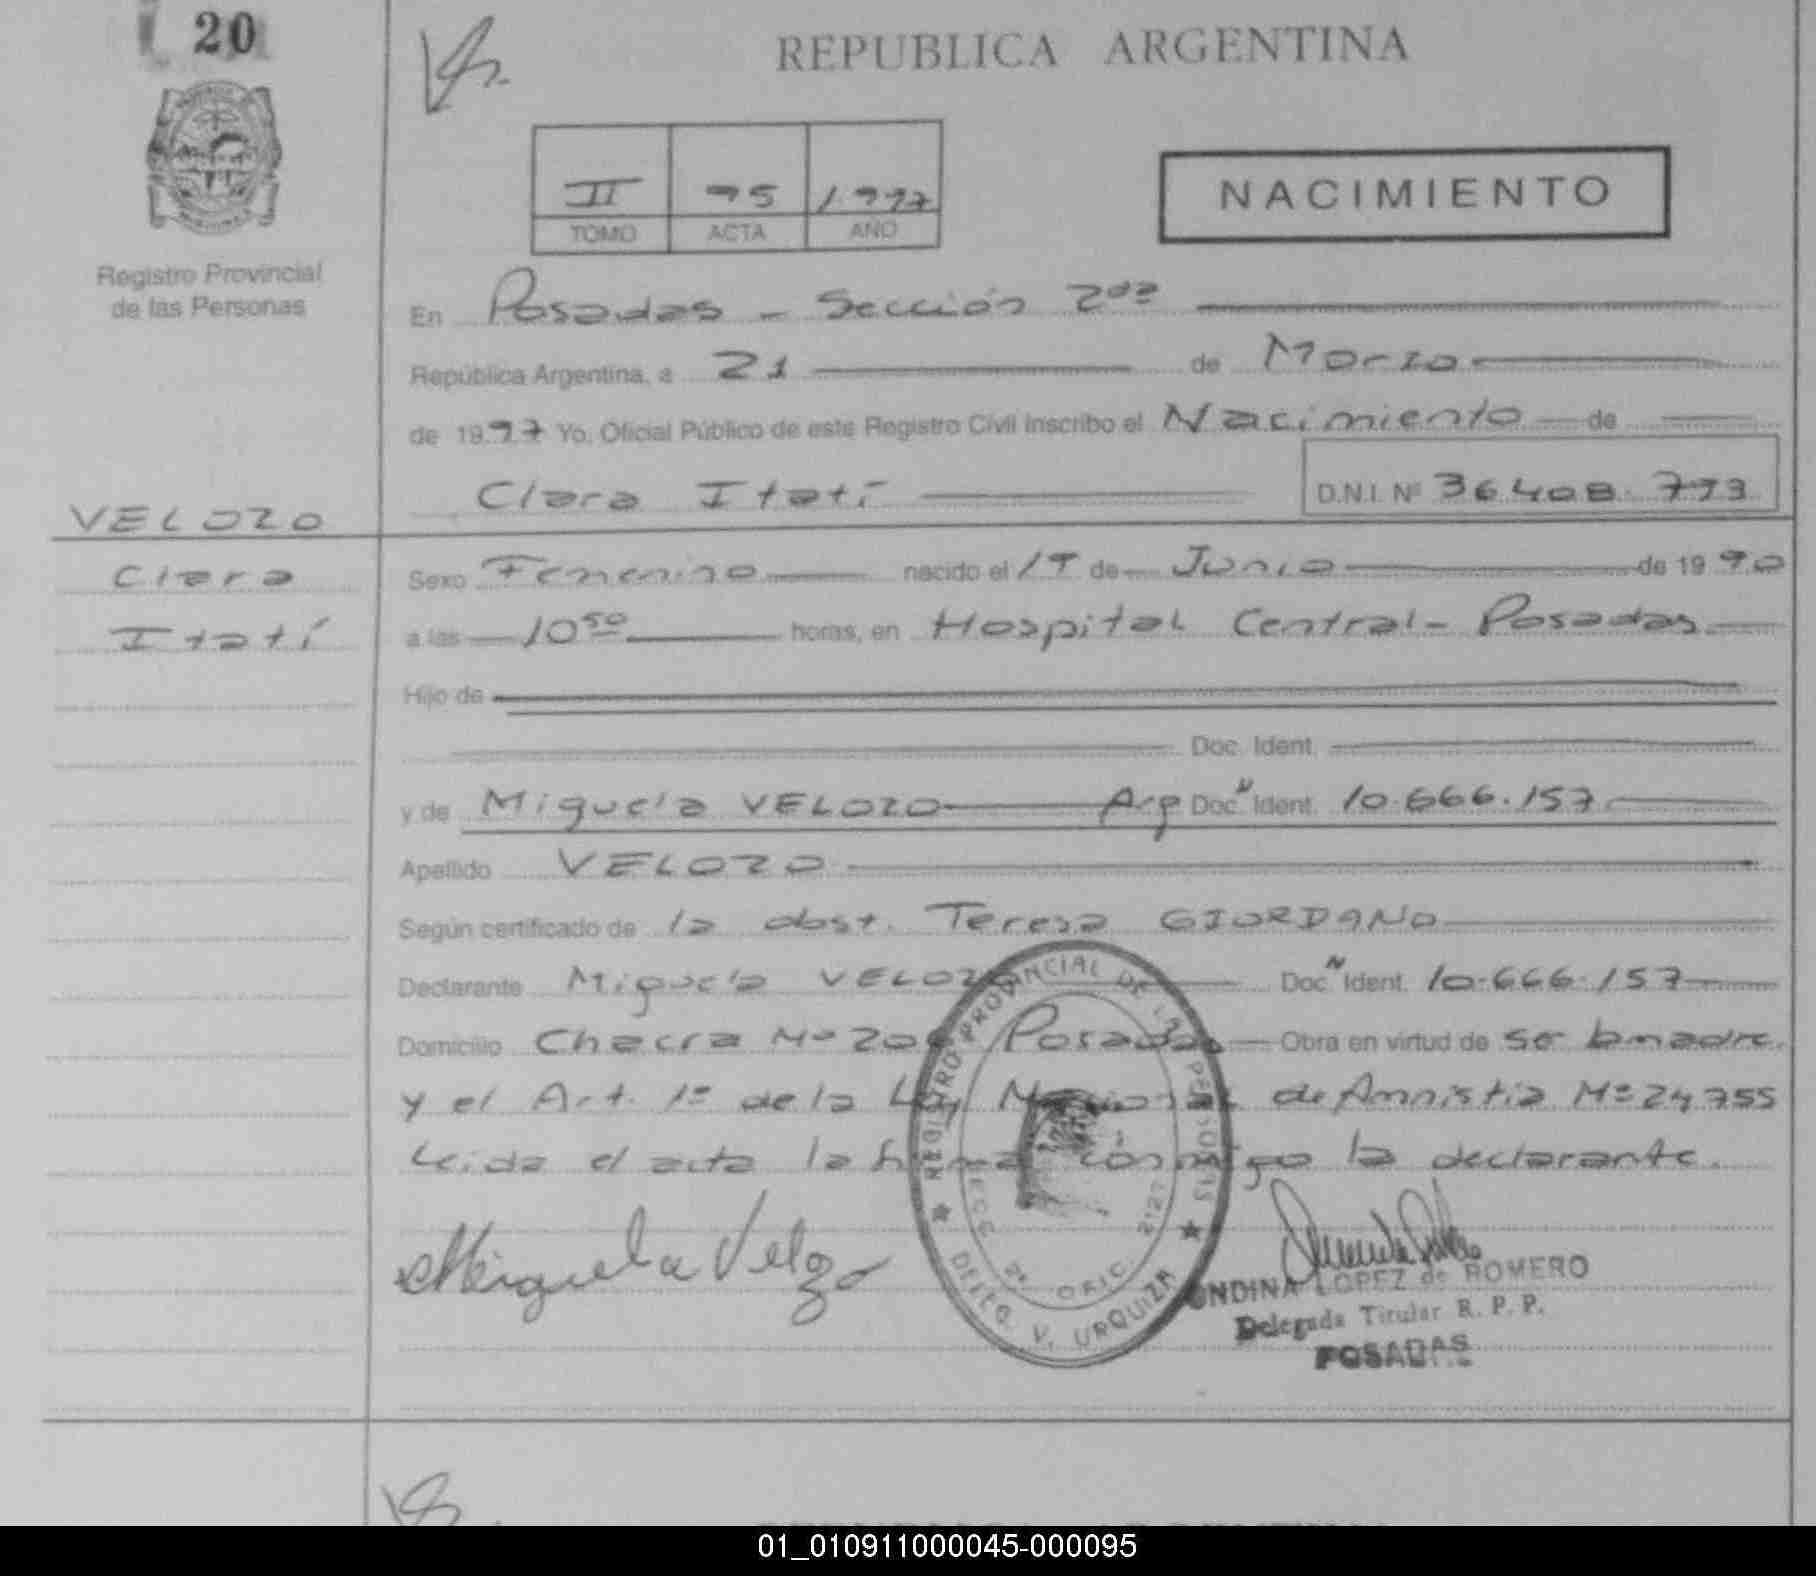 20
REPUBLICA ARGENTINA
II 95 1.997
TOMO ACTA AÑO
NACIMIENTO
Registro Provincial
de las Personas
En Posadas - Sección 2da
República Argentina, a 21 de Marzo
de 1997 Yo, Oficial Público de este Registro Civil inscribo el Nacimiento de
Clara Itatí D.N.I. Nº 36.408.793
VELOZO
Clara
Itatí
Sexo Femenino nacido el 19 de Junio de 1990
a las 10 50 horas, en Hospital Central - Posadas
Hijo de
Doc. Ident.
y de Miguela VELOZO Arg Doc. Ident. 10.666.157
Apellido VELOZO
Según certificado de la obst. Teresa GIORDANO
Declarante Miguela VELOZO Doc. Ident. 10.666.157
Domicilio Chacra Nº 20 Posadas Obra en virtud de ser madre
y el Art. 1º de la Ley Nacional de Amnistia Nº 24755
Leida el acta la firma conmigo la declarante.
Miguela Velozo
REGISTRO PROVINCIAL DE LAS PERSONAS
2ª OFIC. 2127
DELEG. V. URQUIZA
ONDINA LOPEZ de ROMERO
Delegada Titular R. P. P.
POSADAS
01_010911000045-000095